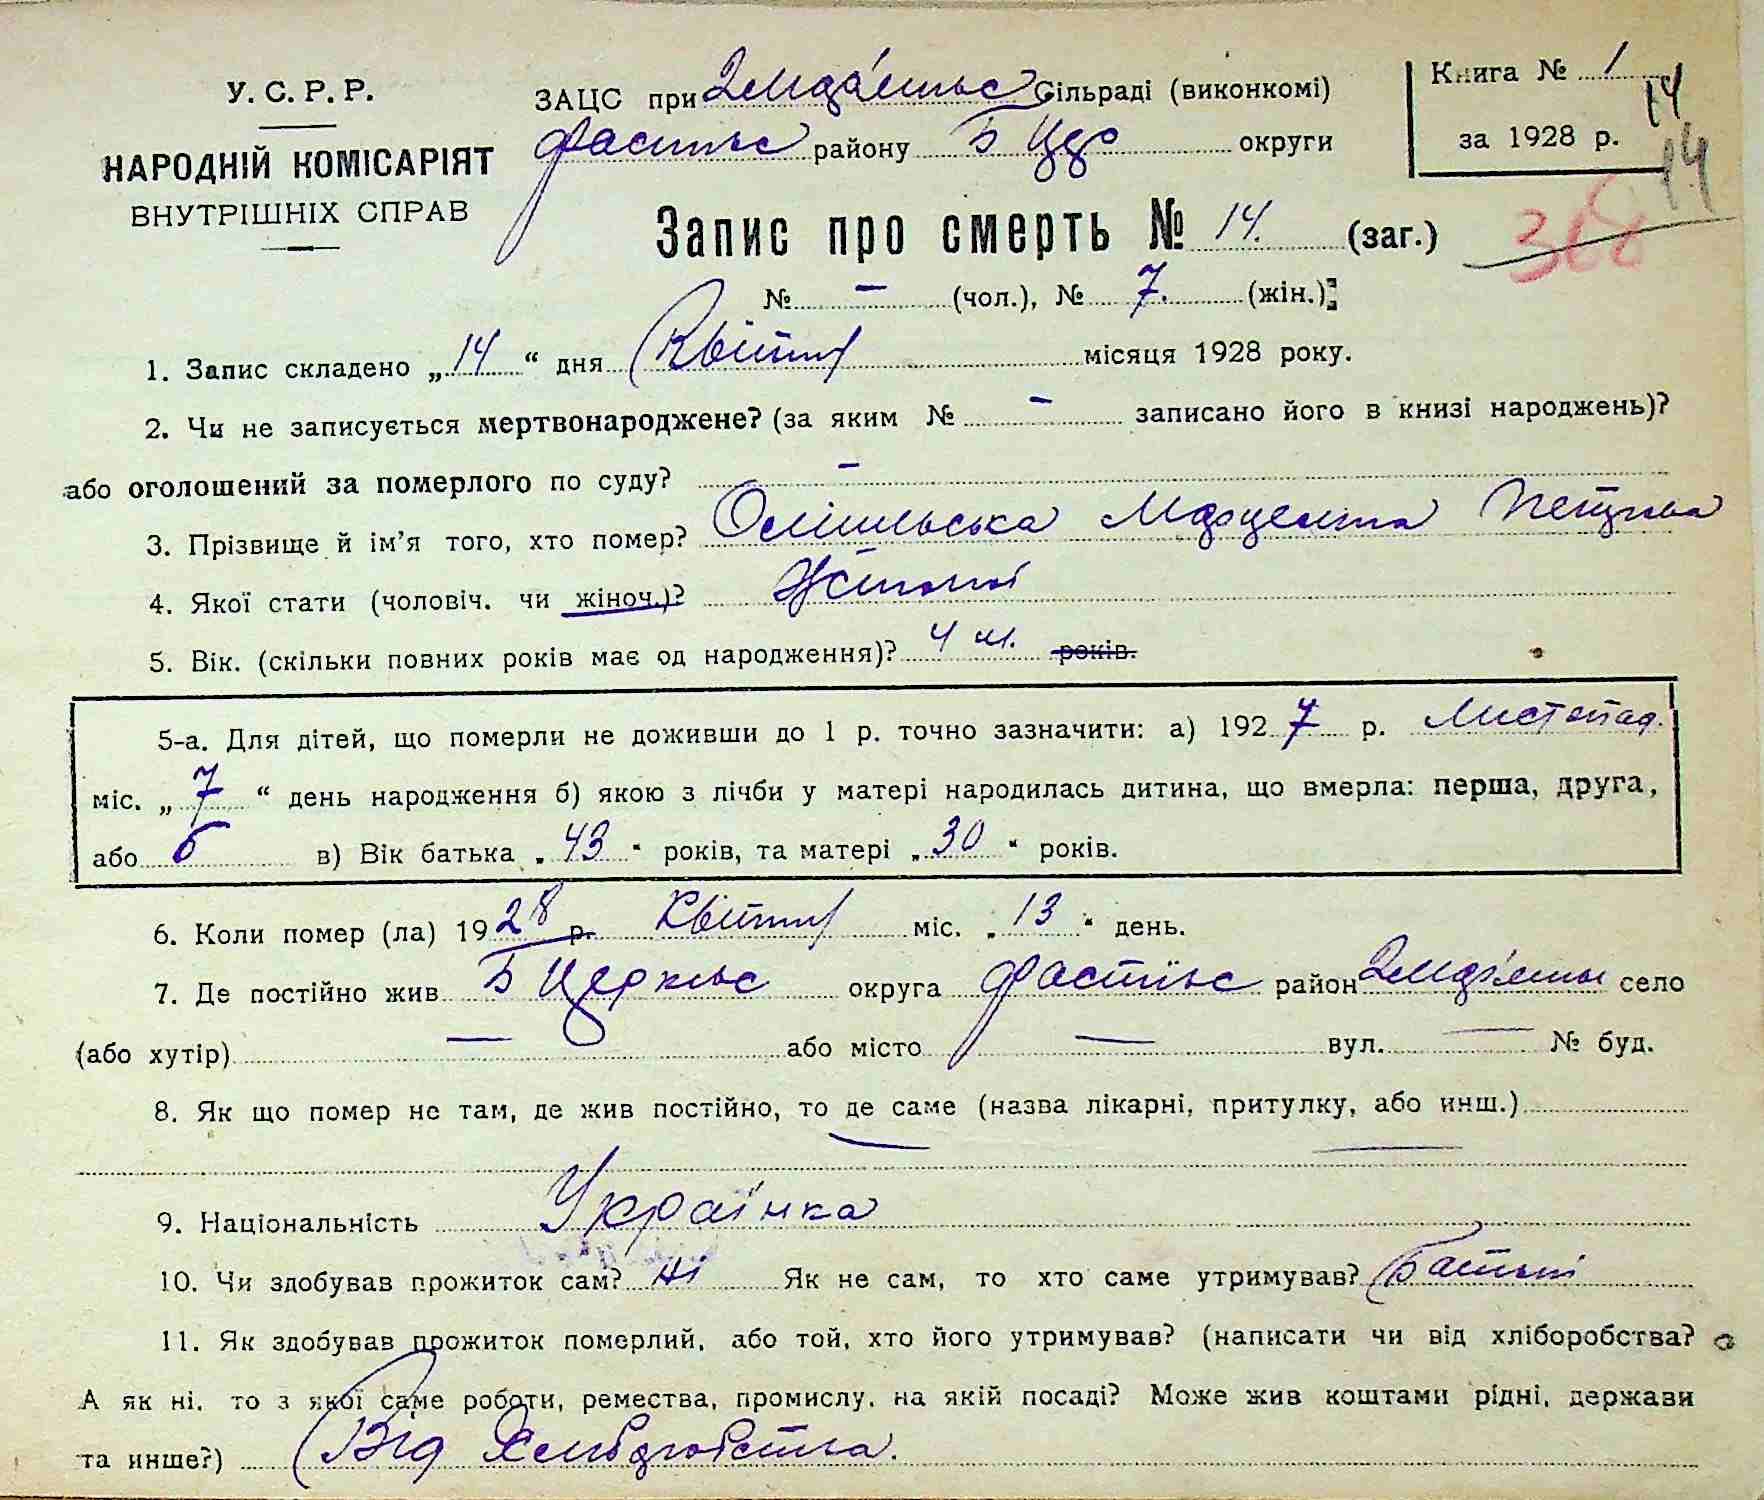 У. С. Р. Р.
НАРОДНІЙ КОМІСАРІЯТ
ВНУТРІШНІХ СПРАВ
ЗАЦС при Сільраді (виконкомі)
Фастівс району Б Цер округи
Книга № 1
за 1928 р.
14
14
368
Запис про смерть № 14. (заг.)
№ – (чол.), № 7. (жін.)
1. Запис складено „14“ дня Квітня місяця 1928 року.
2. Чи не записується мертвонароджене? (за яким № – записано його в книзі народжень)?
або оголошений за померлого по суду? –
3. Прізвище й ім'я того, хто помер? Петрівна
4. Якої стати (чоловіч. чи жіноч.)? Жіночої
5. Вік. (скільки повних років має од народження)? 4 м. років.
5-а. Для дітей, що померли не доживши до 1 р. точно зазначити: а) 1927 р. Листопад.
міс. „7“ день народження б) якою з лічби у матері народилась дитина, що вмерла: перша, друга,
або 6 в) Вік батька „43“ років, та матері „30“ років.
6. Коли помер (ла) 1928 р. Квітня міс. „13“ день.
7. Де постійно жив Б Церківс округа Фастівс район село
(або хутір) — або місто — вул. — № буд.
8. Як що помер не там, де жив постійно, то де саме (назва лікарні, притулку, або инш.)
— —
9. Національність Українка
10. Чи здобував прожиток сам? Ні Як не сам, то хто саме утримував? Батьки
11. Як здобував прожиток померлий, або той, хто його утримував? (написати чи від хліборобства?
А як ні, то з якої саме роботи, ремества, промислу, на якій посаді? Може жив коштами рідні, держави
та инше?) Від Хліборобства.